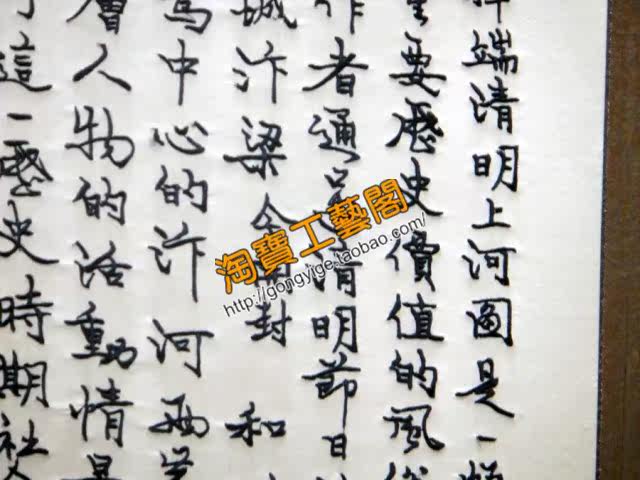 端清明上河圖是一
要歷史價值的風
作者通過清明節日
城汴梁今開封和
中心的汴河兩岸
層人物的活動情景
這一歷史時期社
淘寶工藝閣
http://gongyige.taobao.com/